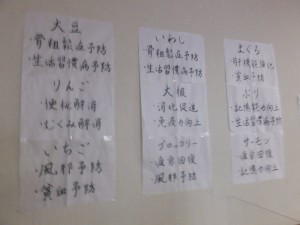 大豆
・骨粗鬆症予防
・生活習慣病予防
りんご
・便秘解消
・むくみ解消
いちご
・風邪予防
・貧血予防
いわし
・骨粗鬆症予防
・生活習慣病予防
大根
・消化促進
・免疫力向上
ブロッコリー
・疲労回復
・風邪予防
まぐろ
・肝機能強化
・貧血予防
ぶり
・記憶力向上
・生活習慣病予防
サーモン
・疲労回復
・記憶力向上